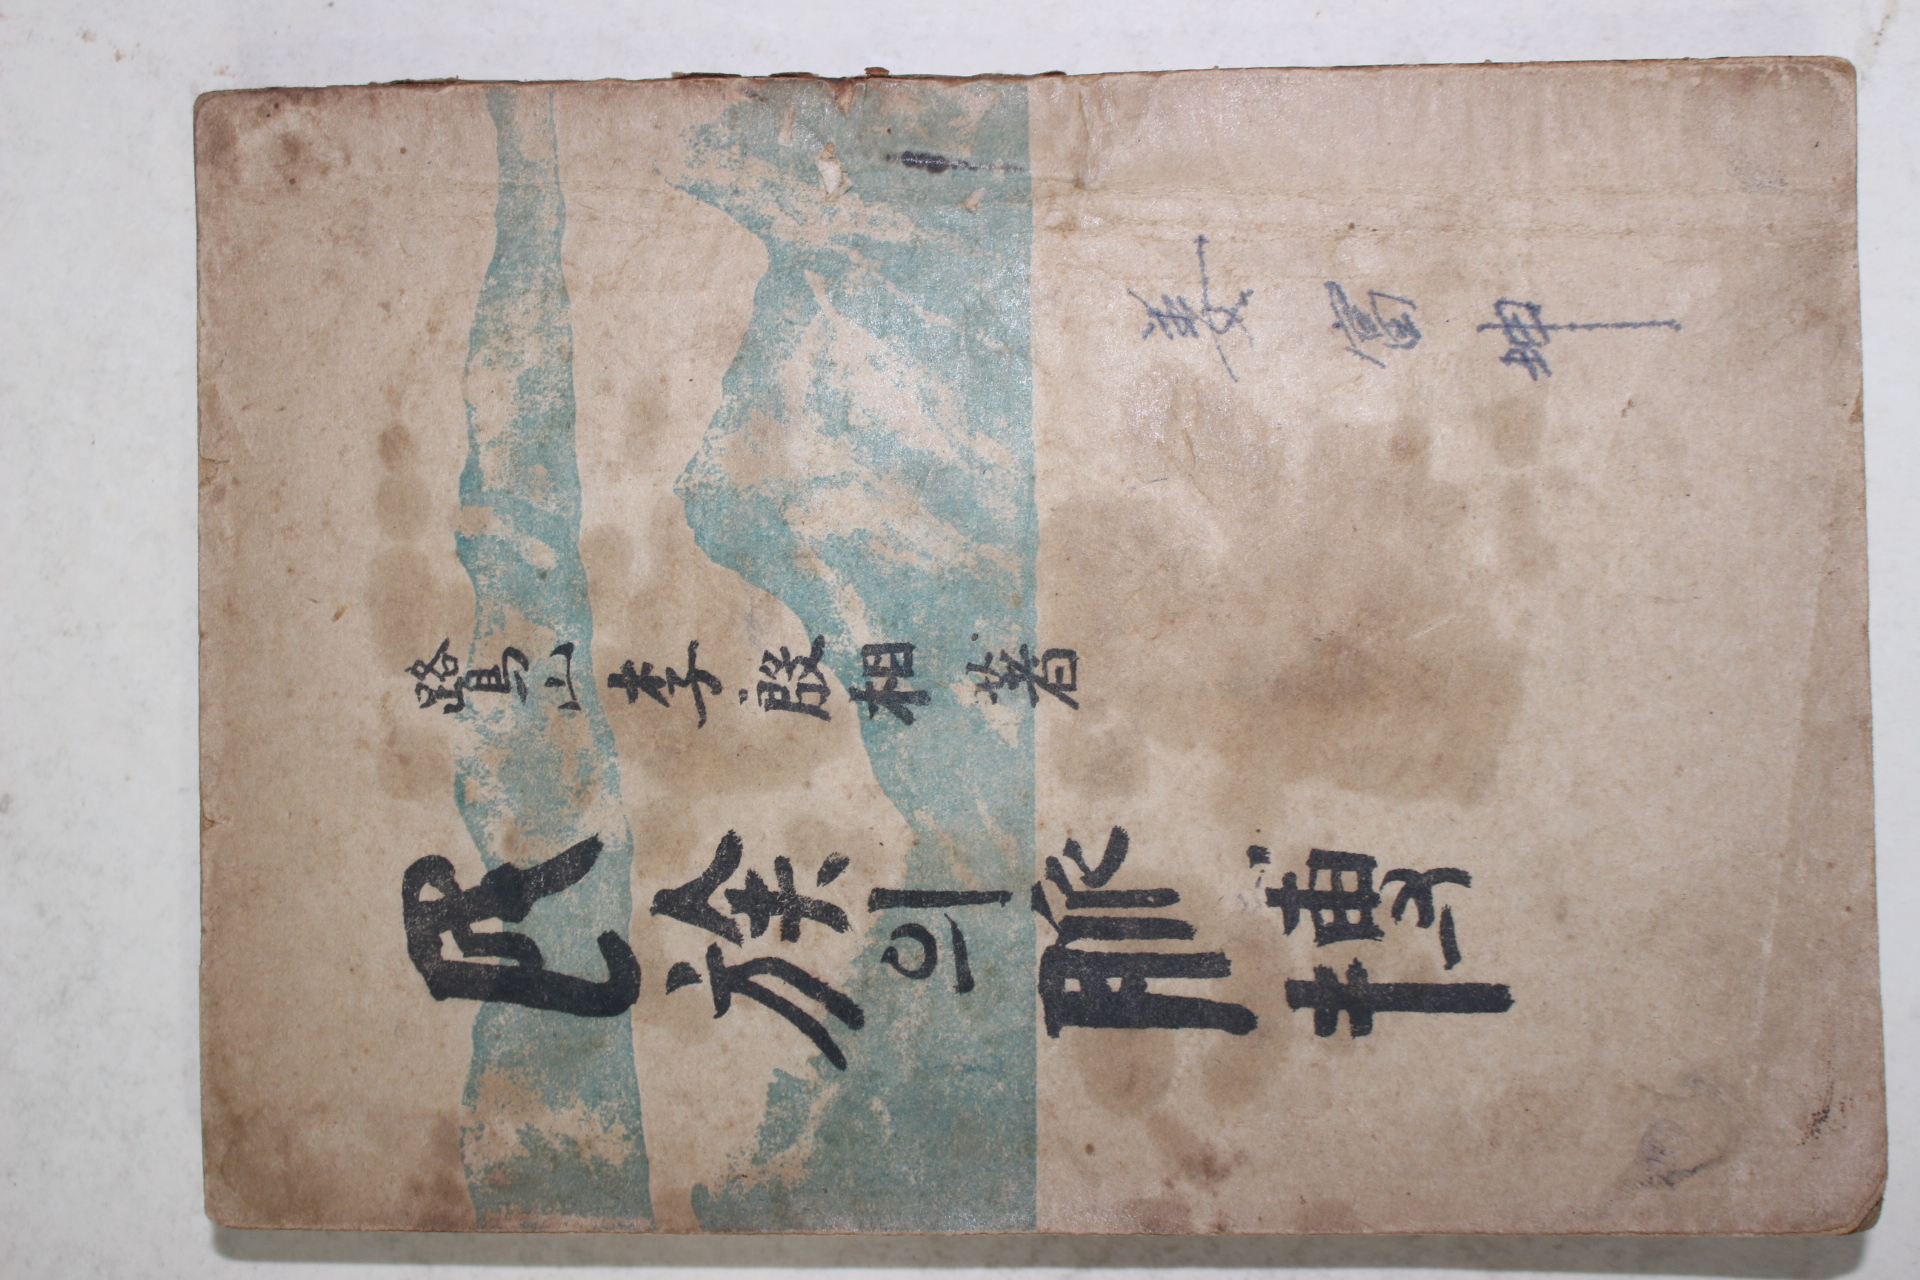 姜
坤
鷺山 李殷相 著
民族의 脈搏